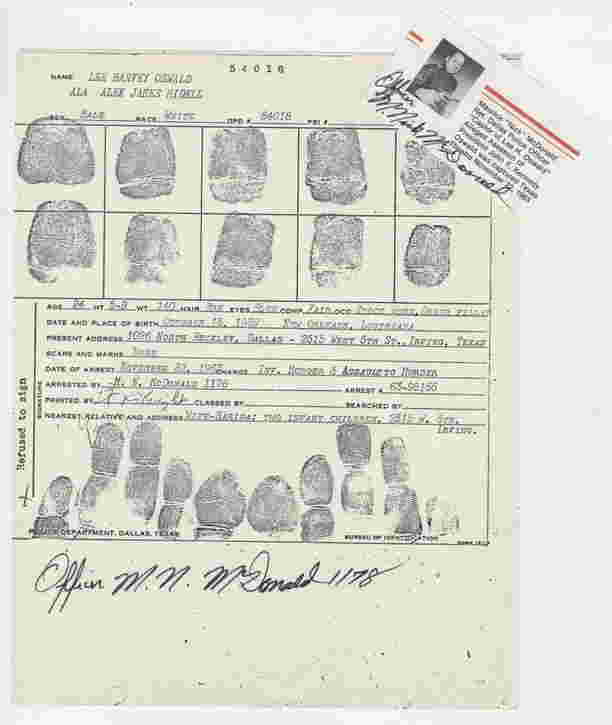 54018
NAME LEE HARVEY OSWALD
ALA ALEK JAMES HIDELL
SEX MALE RACE WHITE DPD # 54018 FBI #
Officer
M.N. "Nick" McDonald
Maurice "Nick" McDonald
AGE 24 HT 5-9 WT 140 HAIR EYES COMP FAIR OCC
DATE AND PLACE OF BIRTH OCTOBER 18, 1939 NEW ORLEANS, LOUISIANA
PRESENT ADDRESS 1026 NORTH BECKLEY, DALLAS - 2515 WEST 5TH ST., IRVING, TEXAS
SCARS AND MARKS NONE
DATE OF ARREST NOVEMBER 1963 CHARGE INV. MURDER & ASSAULT TO MURDER
ARRESTED BY M. N. MCDONALD 1178 ARREST # 63-98155
PRINTED BY CLASSED BY SEARCHED BY
NEAREST RELATIVE AND ADDRESS WIFE-MARINA; TWO INFANT CHILDREN, 2515 W. 5TH,
IRVING.
SIGNATURE
Refused to sign
POLICE DEPARTMENT, DALLAS, TEXAS BUREAU OF IDENTIFICATION FORM
Officer M. N. McDonald 1178